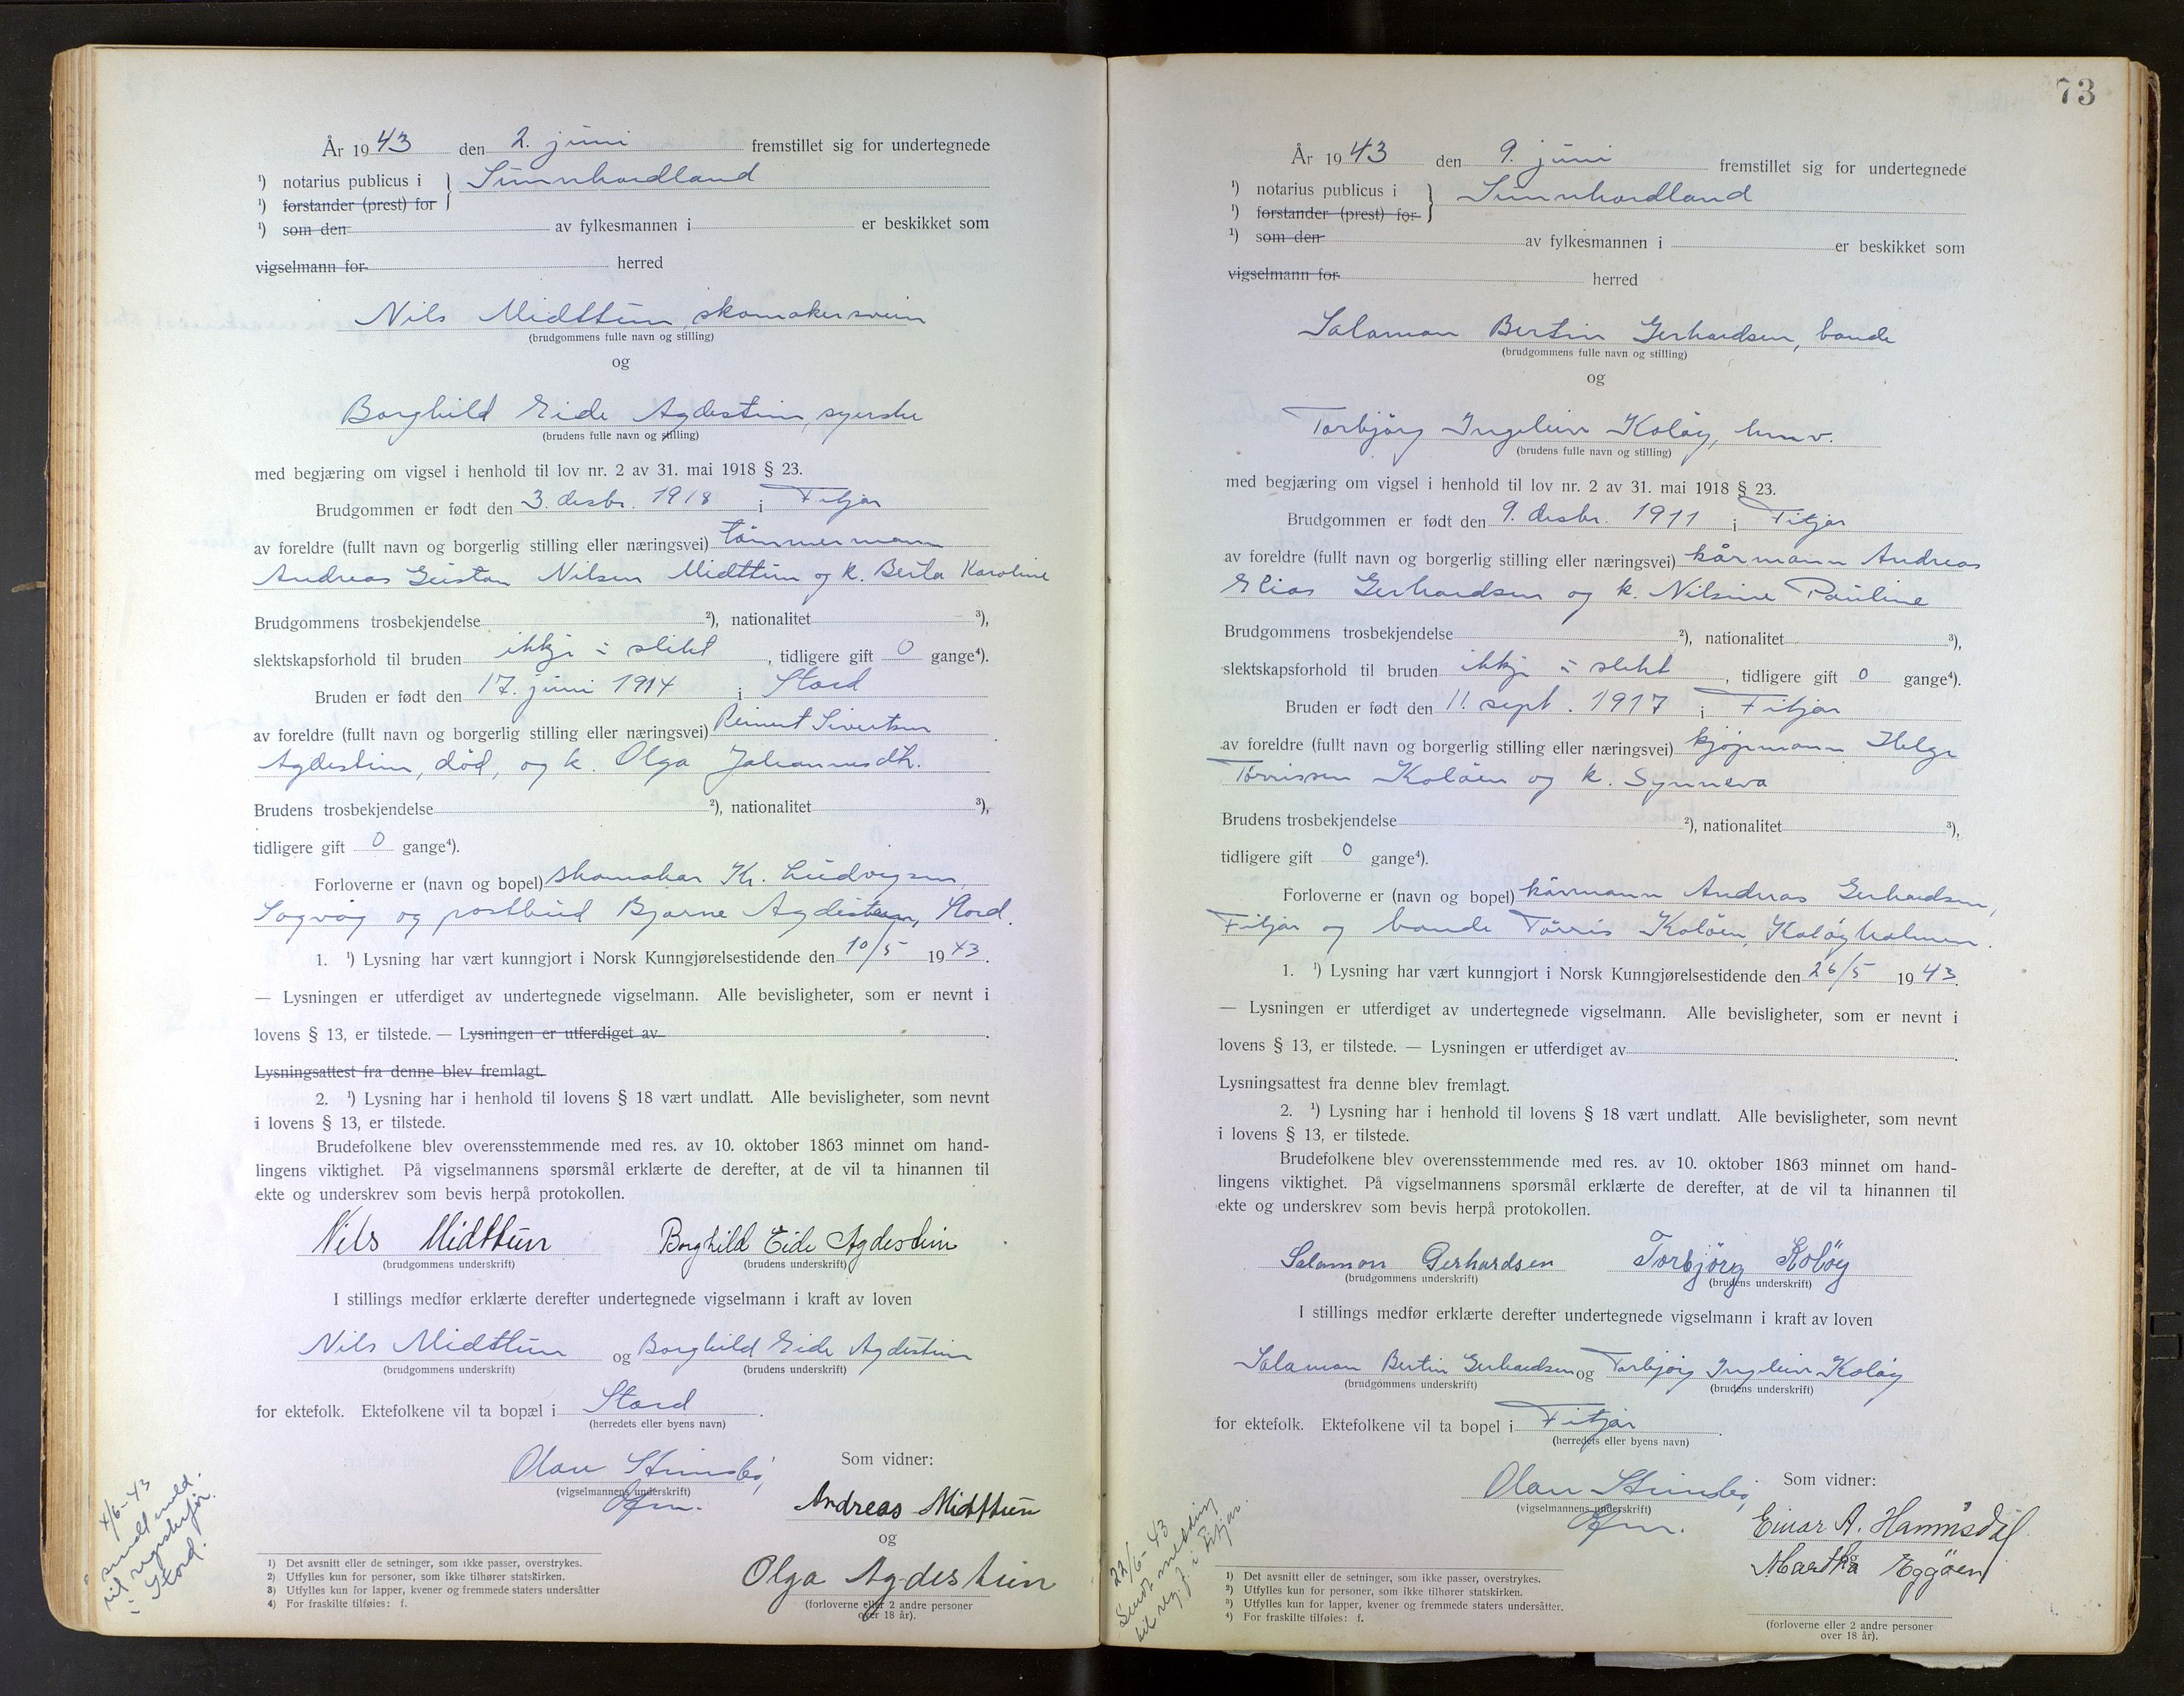 År 1943 den 2. juni fremstillet sig for undertegnede
¹) notarius publicus i } Sunnhordland
¹) forstander (prest) for
¹) som den av fylkesmannen i er beskikket som
vigselmann for herred
Nils Midttun, skomakersvein
(brudgommens fulle navn og stilling)
og
Borghild Eide Agdestein, syerske
(brudens fulle navn og stilling)
med begjæring om vigsel i henhold til lov nr. 2 av 31. mai 1918 § 23.
Brudgommen er født den 3. desbr. 1918 i Fitjar
av foreldre (fullt navn og borgerlig stilling eller næringsvei) tømmermann
Andreas Gustav Nilsen Midttun og k. Berta Karoline
Brudgommens trosbekjendelse ²), nationalitet ³),
slektskapsforhold til bruden ikkje i slekt, tidligere gift 0 gange⁴).
Bruden er født den 17. juni 1914 i Stord
av foreldre (fullt navn og borgerlig stilling eller næringsvei) Reinert Sivertsen
Agdestein, død, og k. Olga Johannesdtr.
Brudens trosbekjendelse ²), nationalitet ³),
tidligere gift 0 gange⁴).
Forloverne er (navn og bopel) skomakar Kr. Ludvigsen,
Sagvåg og postbud Bjarne Agdestein, Stord.
1. ¹) Lysning har vært kunngjort i Norsk Kunngjørelsestidende den 10/5 1943.
— Lysningen er utferdiget av undertegnede vigselmann. Alle bevisligheter, som er nevnt i
lovens § 13, er tilstede. — Lysningen er utferdiget av .
Lysningsattest fra denne blev fremlagt.
2. ¹) Lysning har i henhold til lovens § 18 vært undlatt. Alle bevisligheter, som nevnt
i lovens § 13, er tilstede.
Brudefolkene blev overensstemmende med res. av 10. oktober 1863 minnet om hand-
lingens viktighet. På vigselmannens spørsmål erklærte de derefter, at de vil ta hinannen til
ekte og underskrev som bevis herpå protokollen.
Nils Midttun Borghild Eide Agdestein
(brudgommens underskrift) (brudens underskrift)
I stillings medfør erklærte derefter undertegnede vigselmann i kraft av loven
Nils Midttun og Borghild Eide Agdestein
(brudgommens underskrift) (brudens underskrift)
for ektefolk. Ektefolkene vil ta bopæl i Stord.
(herredets eller byens navn)
Olav Steinsbø, Som vidner:
(vigselmannens underskrift)
Andreas Midttun
og
Olga Agdestein
(forloverne eller 2 andre personer
over 18 år).
4/6-43
sendt meld.
til registerfør.
i Stord.
1) Det avsnitt eller de setninger, som ikke passer, overstrykes.
2) Utfylles kun for personer, som ikke tilhører statskirken.
3) Utfylles kun for lapper, kvener og fremmede staters undersåtter
4) For fraskilte tilføies: f.
73
År 1943 den 9. juni fremstillet sig for undertegnede
¹) notarius publicus i } Sunnhordland
¹) forstander (prest) for
¹) som den av fylkesmannen i er beskikket som
vigselmann for herred
Salamon Bertin Gerhardsen, bonde
(brudgommens fulle navn og stilling)
og
Torbjörg Ingeleiv Koløy, husv.
(brudens fulle navn og stilling)
med begjæring om vigsel i henhold til lov nr. 2 av 31. mai 1918 § 23.
Brudgommen er født den 9. desbr. 1911 i Fitjar
av foreldre (fullt navn og borgerlig stilling eller næringsvei) kårmann Andreas
Elias Gerhardsen og k. Nilsine Pauline
Brudgommens trosbekjendelse ²), nationalitet ³),
slektskapsforhold til bruden ikkje i slekt, tidligere gift 0 gange⁴).
Bruden er født den 11. sept. 1917 i Fitjar
av foreldre (fullt navn og borgerlig stilling eller næringsvei) kjøpmann Helge
Tørrissen Koløen og k. Synneva
Brudens trosbekjendelse ²), nationalitet ³),
tidligere gift 0 gange⁴).
Forloverne er (navn og bopel) kårmann Andreas Gerhardsen,
Fitjar og bonde Tørris Koløen, Koløyholmen.
1. ¹) Lysning har vært kunngjort i Norsk Kunngjørelsestidende den 26/5 1943.
— Lysningen er utferdiget av undertegnede vigselmann. Alle bevisligheter, som er nevnt i
lovens § 13, er tilstede. — Lysningen er utferdiget av .
Lysningsattest fra denne blev fremlagt.
2. ¹) Lysning har i henhold til lovens § 18 vært undlatt. Alle bevisligheter, som nevnt
i lovens § 13, er tilstede.
Brudefolkene blev overensstemmende med res. av 10. oktober 1863 minnet om hand-
lingens viktighet. På vigselmannens spørsmål erklærte de derefter, at de vil ta hinannen til
ekte og underskrev som bevis herpå protokollen.
Salamon Gerhardsen Torbjörg Kolöy
(brudgommens underskrift) (brudens underskrift)
I stillings medfør erklærte derefter undertegnede vigselmann i kraft av loven
Salamon Bertin Gerhardsen og Torbjörg Ingeleiv Koløy
(brudgommens underskrift) (brudens underskrift)
for ektefolk. Ektefolkene vil ta bopel i Fitjar.
(herredets eller byens navn)
Olav Steinsbø, Som vidner:
(vigselmannens underskrift)
Einar A. Hammsdal
og
Martha Eggøen
(forloverne eller 2 andre personer
over 18 år).
22/6-43
Sendt melding
til reg.f. i Fitjar.
1) Det avsnitt eller de setninger, som ikke passer, overstrykes.
2) Utfylles kun for personer, som ikke tilhører statskirken.
3) Utfylles kun for lapper, kvener og fremmede staters undersåtter.
4) For fraskilte tilføies: f.